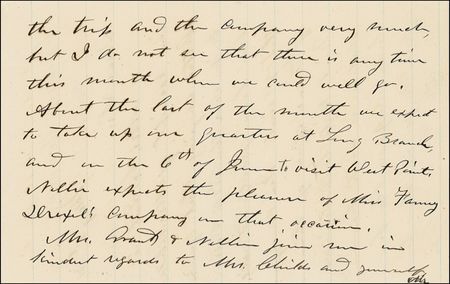 the trip and the company very much,
but I do not see that there is any time
this month when we could well go.
About the last of the month we expect
to take up our quarters at Long Branch,
and on the 6th of June to visit West Point.
Nellie expects the pleasure of Miss Fanny
Drexel's company on that occasion.
Mrs. Grant & Nellie join me in
kindest regards to Mrs. Childs and yourself